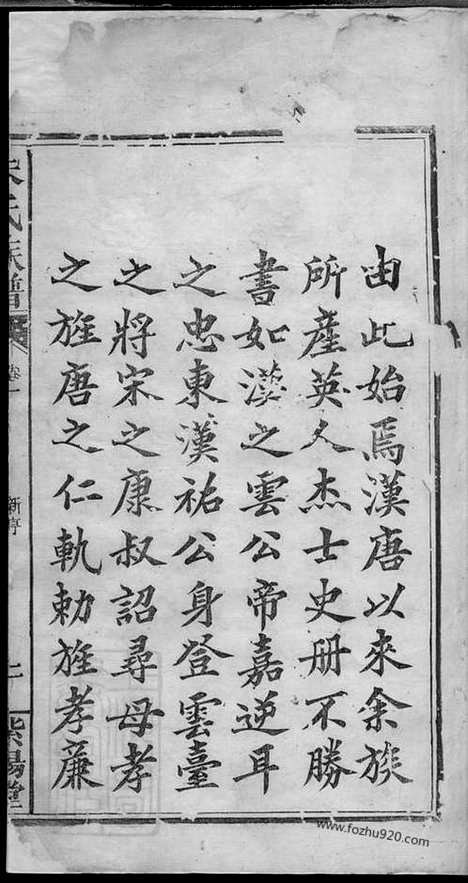 由此始焉漢唐以來余族
所產英人杰士史册不勝
書如漢之雲公帝嘉逆耳
之忠東漢祐公身登雲臺
之將宋之康叔詔尋母孝
之旌唐之仁軌勅旌孝廉
朱氏族譜
卷一
新序
二
紫陽堂
www.fozhu920.com